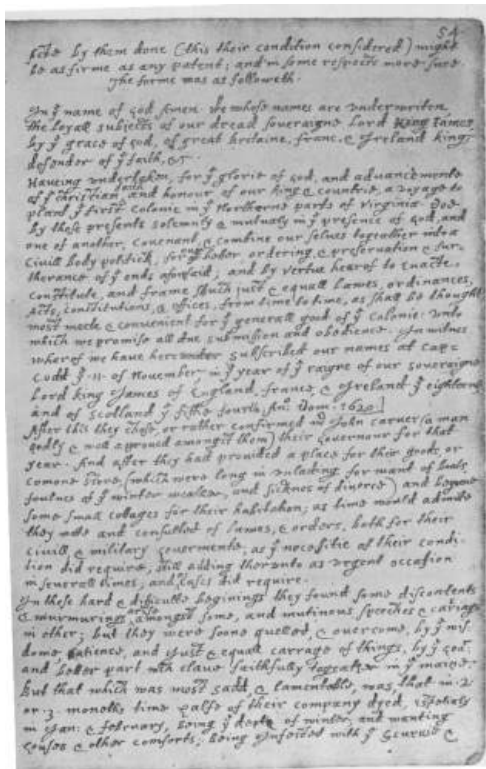 54
Acte by them done (this their condition considered) might
be as firme as any patent; and in some respects more sure.
The forme was as followeth.
In yͤ name of god Amen. We whose names are underwriten,
the loyall subjects of our dread soveraigne Lord King James
by yͤ grace of god, of great britaine, franc, & Ireland king,
defender of yͤ faith, &c.
Haveing undertaken, for yͤ glorie of god, and advancemente
of yͤ christian faith and honour of our king & countrie, a voyage to
plant yͤ first colonie in yͤ Northerne parts of Virginia. Doe
by these presents solemnly & mutualy in yͤ presence of god, and
one of another, covenant, & combine our selves togeather into a
Civill body politick, for our better ordering, & preservation & fur-
therance of yͤ ends aforesaid; and by vertue hearof to enacte,
constitute, and frame shuch just & equall Lawes, ordinances,
Acts, constitutions, & offices, from time to time, as shall be thought
most meete & convenient for yͤ generall good of yͤ Colonie: unto
which we promise all due submission and obedience. In witnes
wherof we have hereunder subscribed our names at Cap-
Codd yͤ .11. of November, in yͤ year of yͤ raigne of our soveraigne
Lord king James of England, franc, & Ireland yͤ eighteenth
and of Scotland yͤ fiftie fourth. Anͦ: Dom. 1620.]
After this they chose, or rather confirmed mͬ John Carver (a man
godly & well approved amongst them) their Governour for that
year. And after they had provided a place for their goods, or
comone store, (which were long in unlading for want of boats,
foulnes of yͤ winter weather, and sicknes of diverce) and begune
some small cottages for their habitation; as time would admitte
they mette and consulted of lawes, & orders, both for their
civill & military Govermente, as yͤ necessitie of their condi-
tion did require, still adding therunto as urgent occasion
in severall times, and as cases did require.
In these hard & difficulte beginings they found some discontents
& murmurings arise amongst some, and mutinous speeches & cariags
in other; but they were soone quelled, & overcome, by yͤ wis-
dome, patience, and just & equall carrage of things, by yͤ Govͬ
and better part wͨh clave faithfully togeather in yͤ maine.
But that which was most sadd, & lamentable, was, that in .2.
or .3. moneths time halfe of their company dyed, espetialy
in Jan: & february, being yͤ depth of winter, and wanting
houses & other comforts; being Infected with yͤ Scurvie &